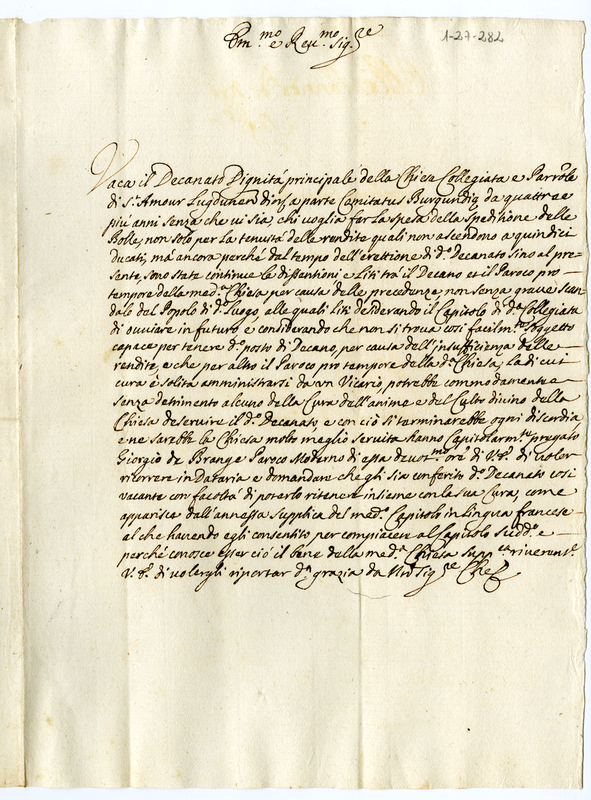 Em.mo e Reu.mo Sig.re
1-27-282
Vaca il Decanato Dignità principale della Chiesa Collegiata e Parrõle
di S. Amour Lugdunen dinj a parte Comitatus Burgundię da quattro e
più anni senza che ui sia, chi uoglia far la spesa della spedizione delle
Bolle, non solo per la tenuità delle rendite quali non ascendono a quindici
ducati, mà ancora perche dal tempo dell'erettione di d.o Decanato sino al pre-
sente, sono state continue le dissentioni e liti trà il Decano et il Paroco pro-
tempore della med.a Chiesa per causa delle precedenze non senza graue scan-
dalo del Popolo di d.o luogo, alle quali liti desiderando il Capitolo di d.a Collegiata
di ouuiare in futuro e considerando che non si troua così facilm.te soggetto
capace per tenere d.o posto di Decano, per causa dell'insufficienza delle
rendite, e che per altro il Paroco pro tempore della d.a Chiesa, la di cui
cura è solita amministrarsi da un Vicario potrebbe commodamente
senza detrimento alcuno della Cura dell'anime e del Culto diuino della
Chiesa deseruire il d.o Decanato, e con ciò si terminarebbe ogni discordia
e ne sarebbe la Chiesa molto meglio seruita hanno Capitolarm.te pregato
Giorgio de Brange Paroco Moderno di essa deuot.mo ore di V.E. di uoler
ricorrere in Dataria e domandare che gli sia conferito d.o Decanato così
uacante con facoltà di poterlo ritenere insieme con la sua Cura, come
apparisce dall'annessa supplica del med.o Capitolo in lingua francese
al che hauendo egli consentito per compiacere al Capitolo sud.o e
perche conosce esser ciò il bene della med.a Chiesa supp.ca riuerent.te
V.E. di uolergli riportar d.a grazia da Nrõ Sig.re Che